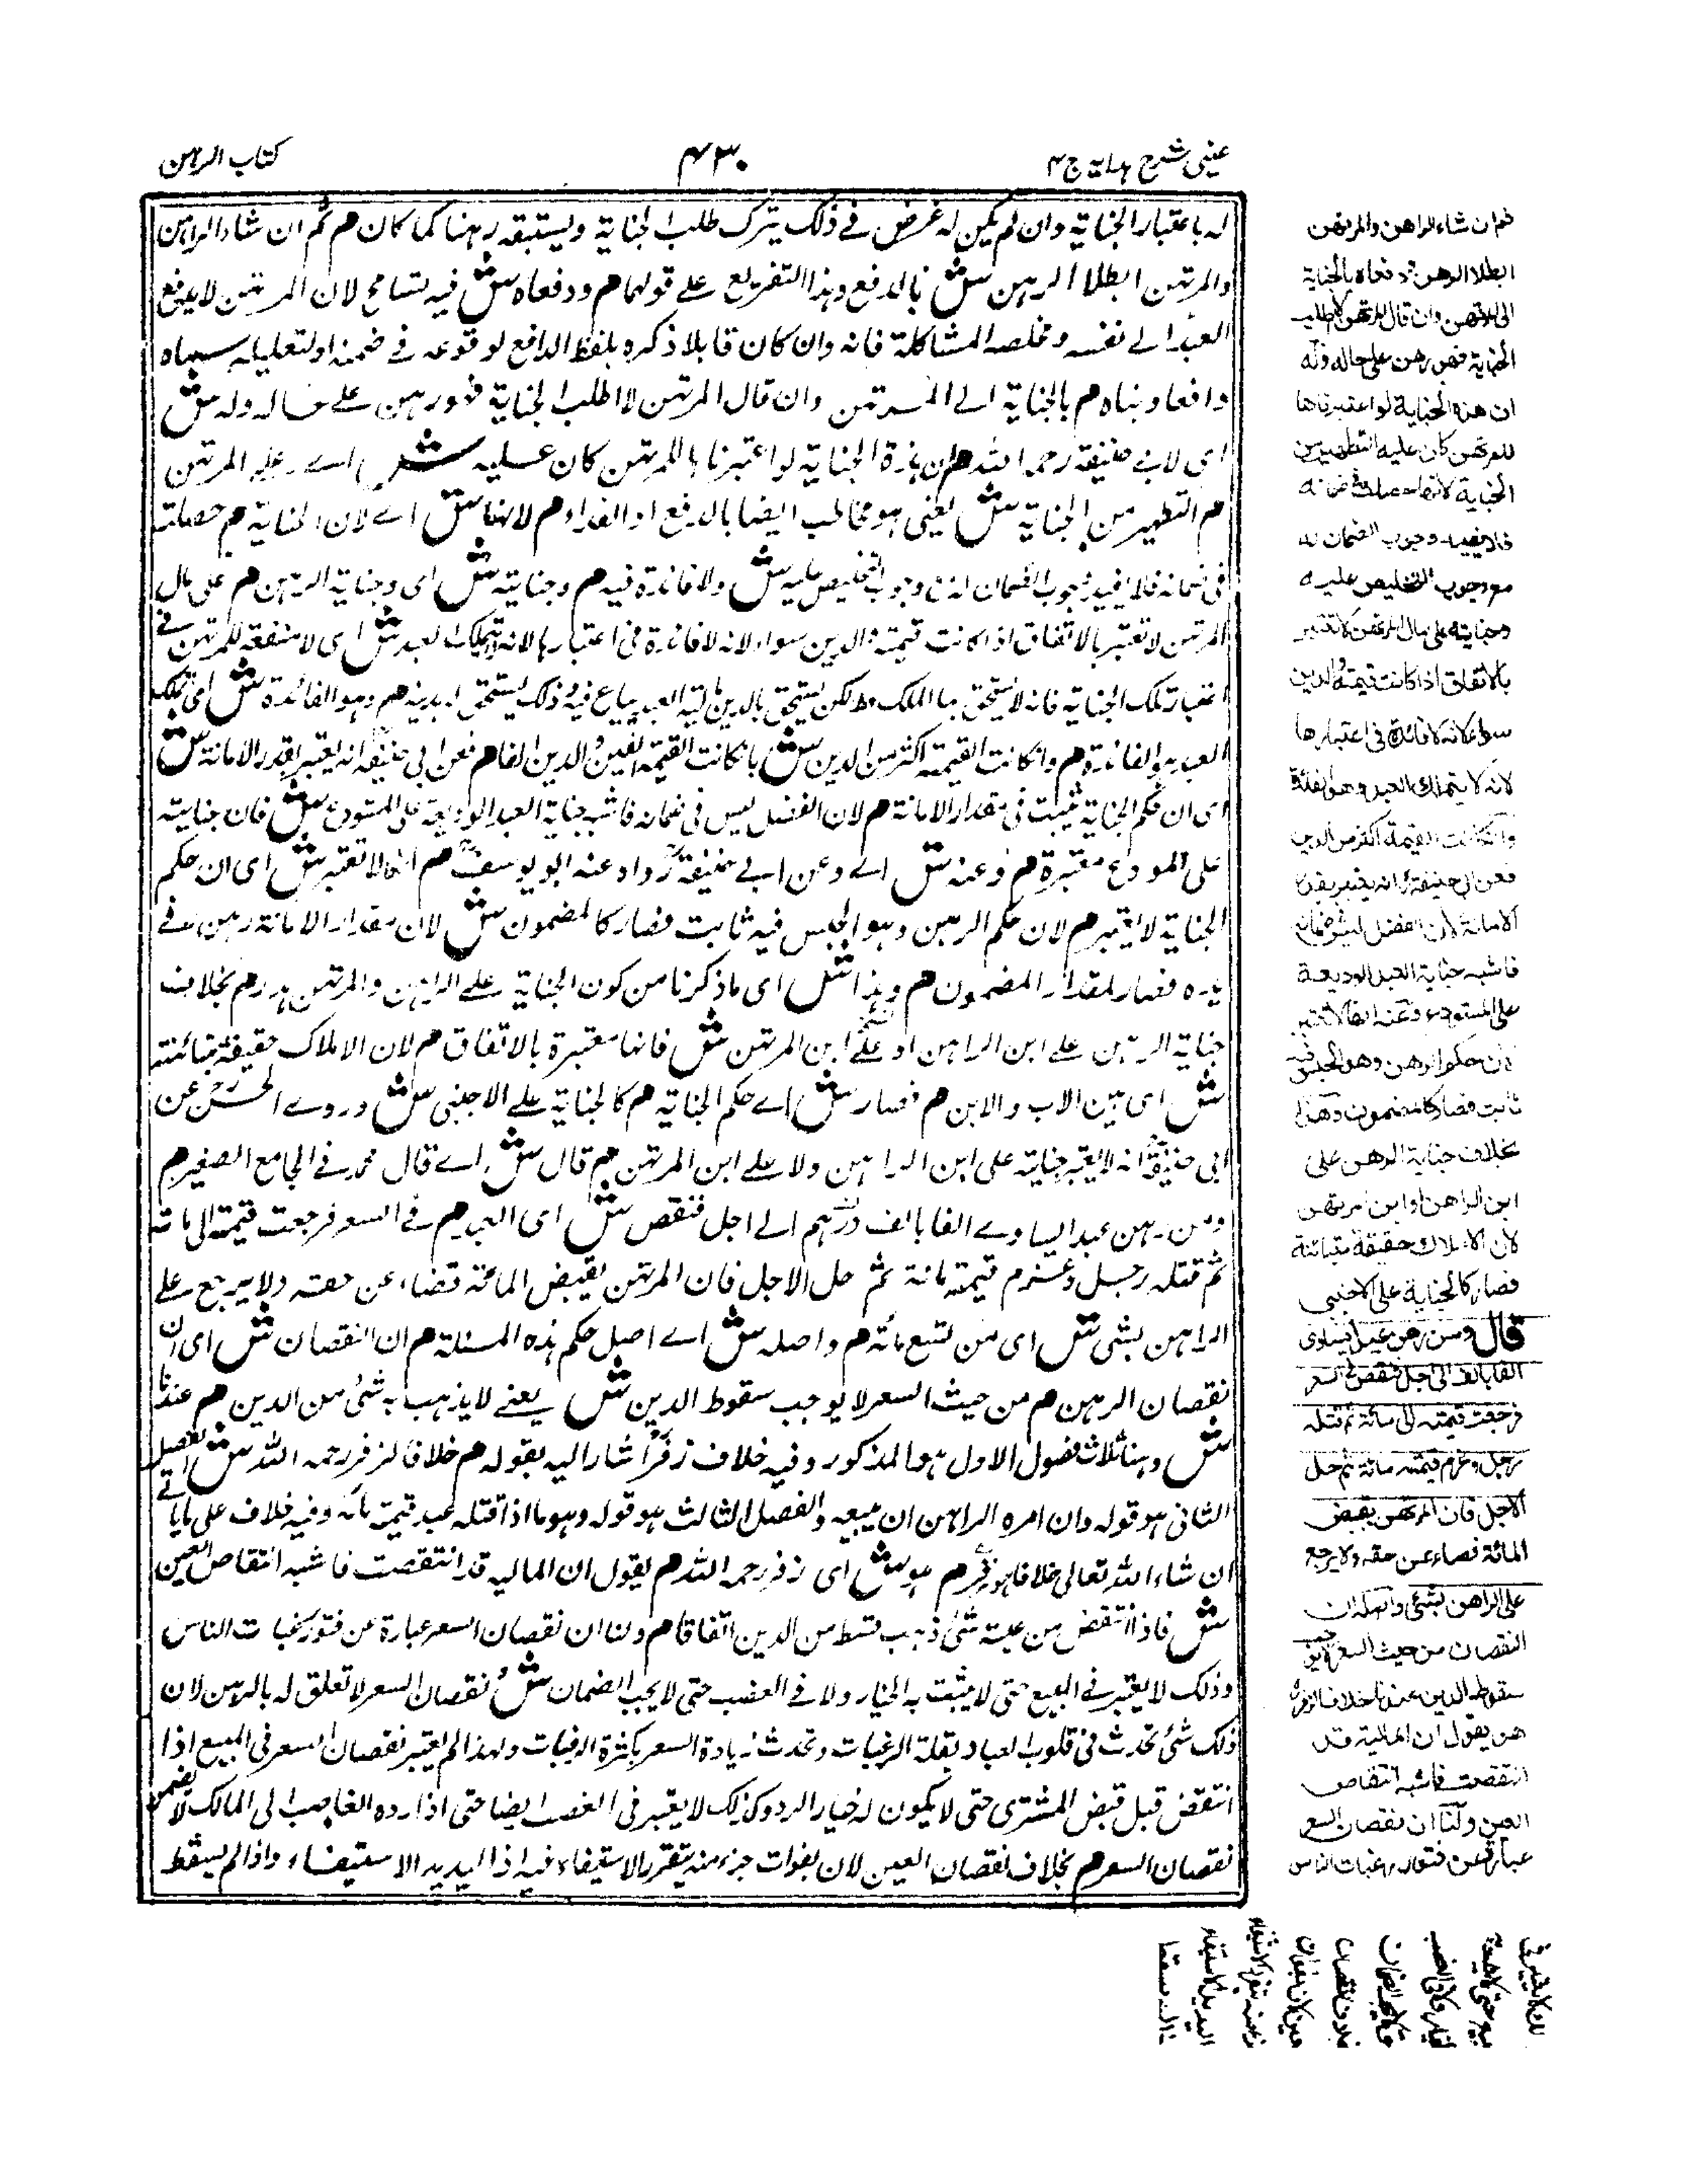 عینی شرح ہدایة ج ۴
۴۳۰
کتاب الرہن
لہ باعتبار الجنایة وان لم یکن لہ غرض فے ذلک یترک طلب الجنایة ویستبقہ رہنا کما کان م ثم ان شاء الراہن
والمرتہن ابطلا الرہن ش بالدفع وہذا التفریع علے قولہما م ودفعاہ ش فیہ تسامح لان المرتہن لا یدفع
العبد الے نفسہ ومخلصہ المشاکلة فانہ وان کان قابلا ذکرہ بلفظ الدافع لوقوعہ فے ضمنہ او لتعلیلہ سماہ
دافعا م بالجنایة الے المرتہن وان قال المرتہن لا اطلب الجنایة فہو رہن علے حالہ ولہ ش
ای لابی حنیفة رحمہ اللہ م ان ہذہ الجنایة لو اعتبرناہا للمرتہن کان علیہ ش اے علی المرتہن
م التطہیر من الجنایة ش یعنی ہو مخاطب ایضا بالدفع او الفداء م لانہا ش اے لان الجنایة م حصلت
فی ضمانہ فلا یفید وجوب الضمان لہ مع وجوب التخلیص علیہ ش ولا فائدة فیہ م وجنایتہ ش ای وجنایة الرہن م علی مال
المرتہن لا تعتبر بالاتفاق اذا کانت قیمتہ والدین سواء لانہ لا فائدة فی اعتبارہا لانہ لا یتملک العبد ش ای لا منفعة للمرتہن فے
اعتبار تلک الجنایة فانہ لا یستحق بہا الملک ولکن یستحق بالدین مالیة العبد یباع فیہ وذلک یستحق لہ بدینہ م وہو الفائدة ش ای تملک
العبد ہو الفائدة م وان کانت القیمة اکثر من الدین ش بان کانت القیمة الفین والدین الفا م فعن ابی حنیفة انہ یعتبر بقدر الامانة ش
ای ان حکم الجنایة یثبت فی مقدار الامانة م لان الفضل لیس فی ضمانہ فاشبہ جنایة العبد الودیعة علی المستودع ش فان جنایتہ
علی المودع معتبرة م وعنہ ش اے وعن ابے حنیفة رواہ عنہ ابو یوسف م انہا لا تعتبر ش ای ان حکم
الجنایة لا یعتبر م لان حکم الرہن وہو الحبس فیہ ثابت فصار کالمضمون ش لان مقدار الامانة رہن فے
یدہ فصار کمقدار المضمون م وہذا ش ای ما ذکرنا من کون الجنایة علے الراہن والمرتہن ہدر م بخلاف
جنایة الرہن علے ابن الراہن او علے ابن المرتہن ش فانہا معتبرة بالاتفاق م لان الاملاک حقیقة متبائنة
ش ای بین الاب والابن م فصار ش اے حکم الجنایة م کالجنایة علے الاجنبی ش وروے الحسن عن
ابی حنیفة انہ لا یعتبر جنایتہ علی ابن الراہن ولا علے ابن المرتہن م قال ش اے قال محمد فے الجامع الصغیر م
ومن رہن عبدا یساوے الفا بالف درہم الے اجل فنقص ش ای العبد م فے السعر فرجعت قیمتہ الی مائة
ثم قتلہ رجل وغرم قیمتہ مائة ثم حل الاجل فان المرتہن یقبض المائة قضاء عن حقہ ولا یرجع علے
الراہن بشئی ش ای من تسع مائة م واصلہ ش اے اصل حکم ہذہ المسئلة م ان النقصان ش ای ان
نقصان الرہن م من حیث السعر لا یوجب سقوط الدین ش یعنے لا یذہب بہ شئی من الدین م عندنا
ش وہنا ثلاث فصول الاول ہو المذکور وفیہ خلاف زفر اشار الیہ بقولہ م خلافا لزفر رحمہ اللہ ش الفصل
الثانی ہو قولہ وان امرہ الراہن ان یبیعہ والفصل الثالث ہو قولہ وہو ما اذا قتلہ عبد قیمتہ مائة وفیہ خلاف علی ما یاتے
ان شاء اللہ تعالی م ہو ش ای زفر رحمہ اللہ م یقول ان المالیة قد انتقصت فاشبہ انتقاص العین
ش فاذا انتقص من عینہ شئی ذہب قسط من الدین اتفاقا م ولنا ان نقصان السعر عبارة عن فتور رغبات الناس
وذلک لا یعتبر فے البیع حتی لا یثبت بہ الخیار ولا فے الغصب حتی لا یجب الضمان ش نقصان السعر لا تعلق لہ بالرہن لان
ذلک شئی تحدث فی قلوب العباد بقلة الرغبات وتحدث زیادة السعر بکثرة الرغبات ولہذا لم یعتبر نقصان السعر فی المبیع اذا
انتقض قبل قبض المشتری حتی لا یکون لہ خیار الرد وکذلک لا یعتبر فی الغصب ایضا حتی اذا ردہ الغاصب الی المالک لا یضمن
نقصان السعر م بخلاف نقصان العین لان بفوات جزء منہ یتقرر الاستیفاء فیہ اذ الید ید الاستیفاء واذا لم یسقط
ثم ان شاء الراهن والمرتهن
ابطلا الرهن ودفعاه بالجناية
الى المرتهن وان قال المرتهن لا اطلب
الجناية فهو رهن على حاله وله
ان هذه الجناية لو اعتبرناها
للمرتهن كان عليه التطهير من
الجناية لانها حصلت في ضمانه
فلا يفيد وجوب الضمان له
مع وجوب التخليص عليه
وجنايته على مال المرتهن لا تعتبر
بالاتفاق اذا كانت قيمته والدين
سواء لانه لا فائدة في اعتبارها
لانه لا يتملك العبد وهو الفائدة
وان كانت القيمة اكثر من الدين
فعن ابي حنيفة انه يعتبر بقدر
الامانة لان الفضل ليس في ضمانه
فاشبه جناية العبد الوديعة
على المستودع وعنه انها لا تعتبر
لان حكم الرهن وهو الحبس فيه
ثابت فصار كالمضمون وهذا
بخلاف جناية الرهن على
ابن الراهن او ابن المرتهن
لان الاملاك حقيقة متبائنة
فصار كالجناية على الاجنبي
قال ومن رهن عبدا يساوى
الفا بالف الى اجل فنقص في السعر
فرجعت قيمته الى مائة ثم قتله
رجل وغرم قيمته مائة ثم حل
الاجل فان المرتهن يقبض
المائة قضاء عن حقه ولا يرجع
على الراهن بشئى واصله ان
النقصان من حيث السعر لا يوجب
سقوط الدين عندنا خلافا لزفر
هو يقول ان المالية قد
انتقصت فاشبه انتقاص
العين ولنا ان نقصان السعر
عبارة عن فتور رغبات الناس